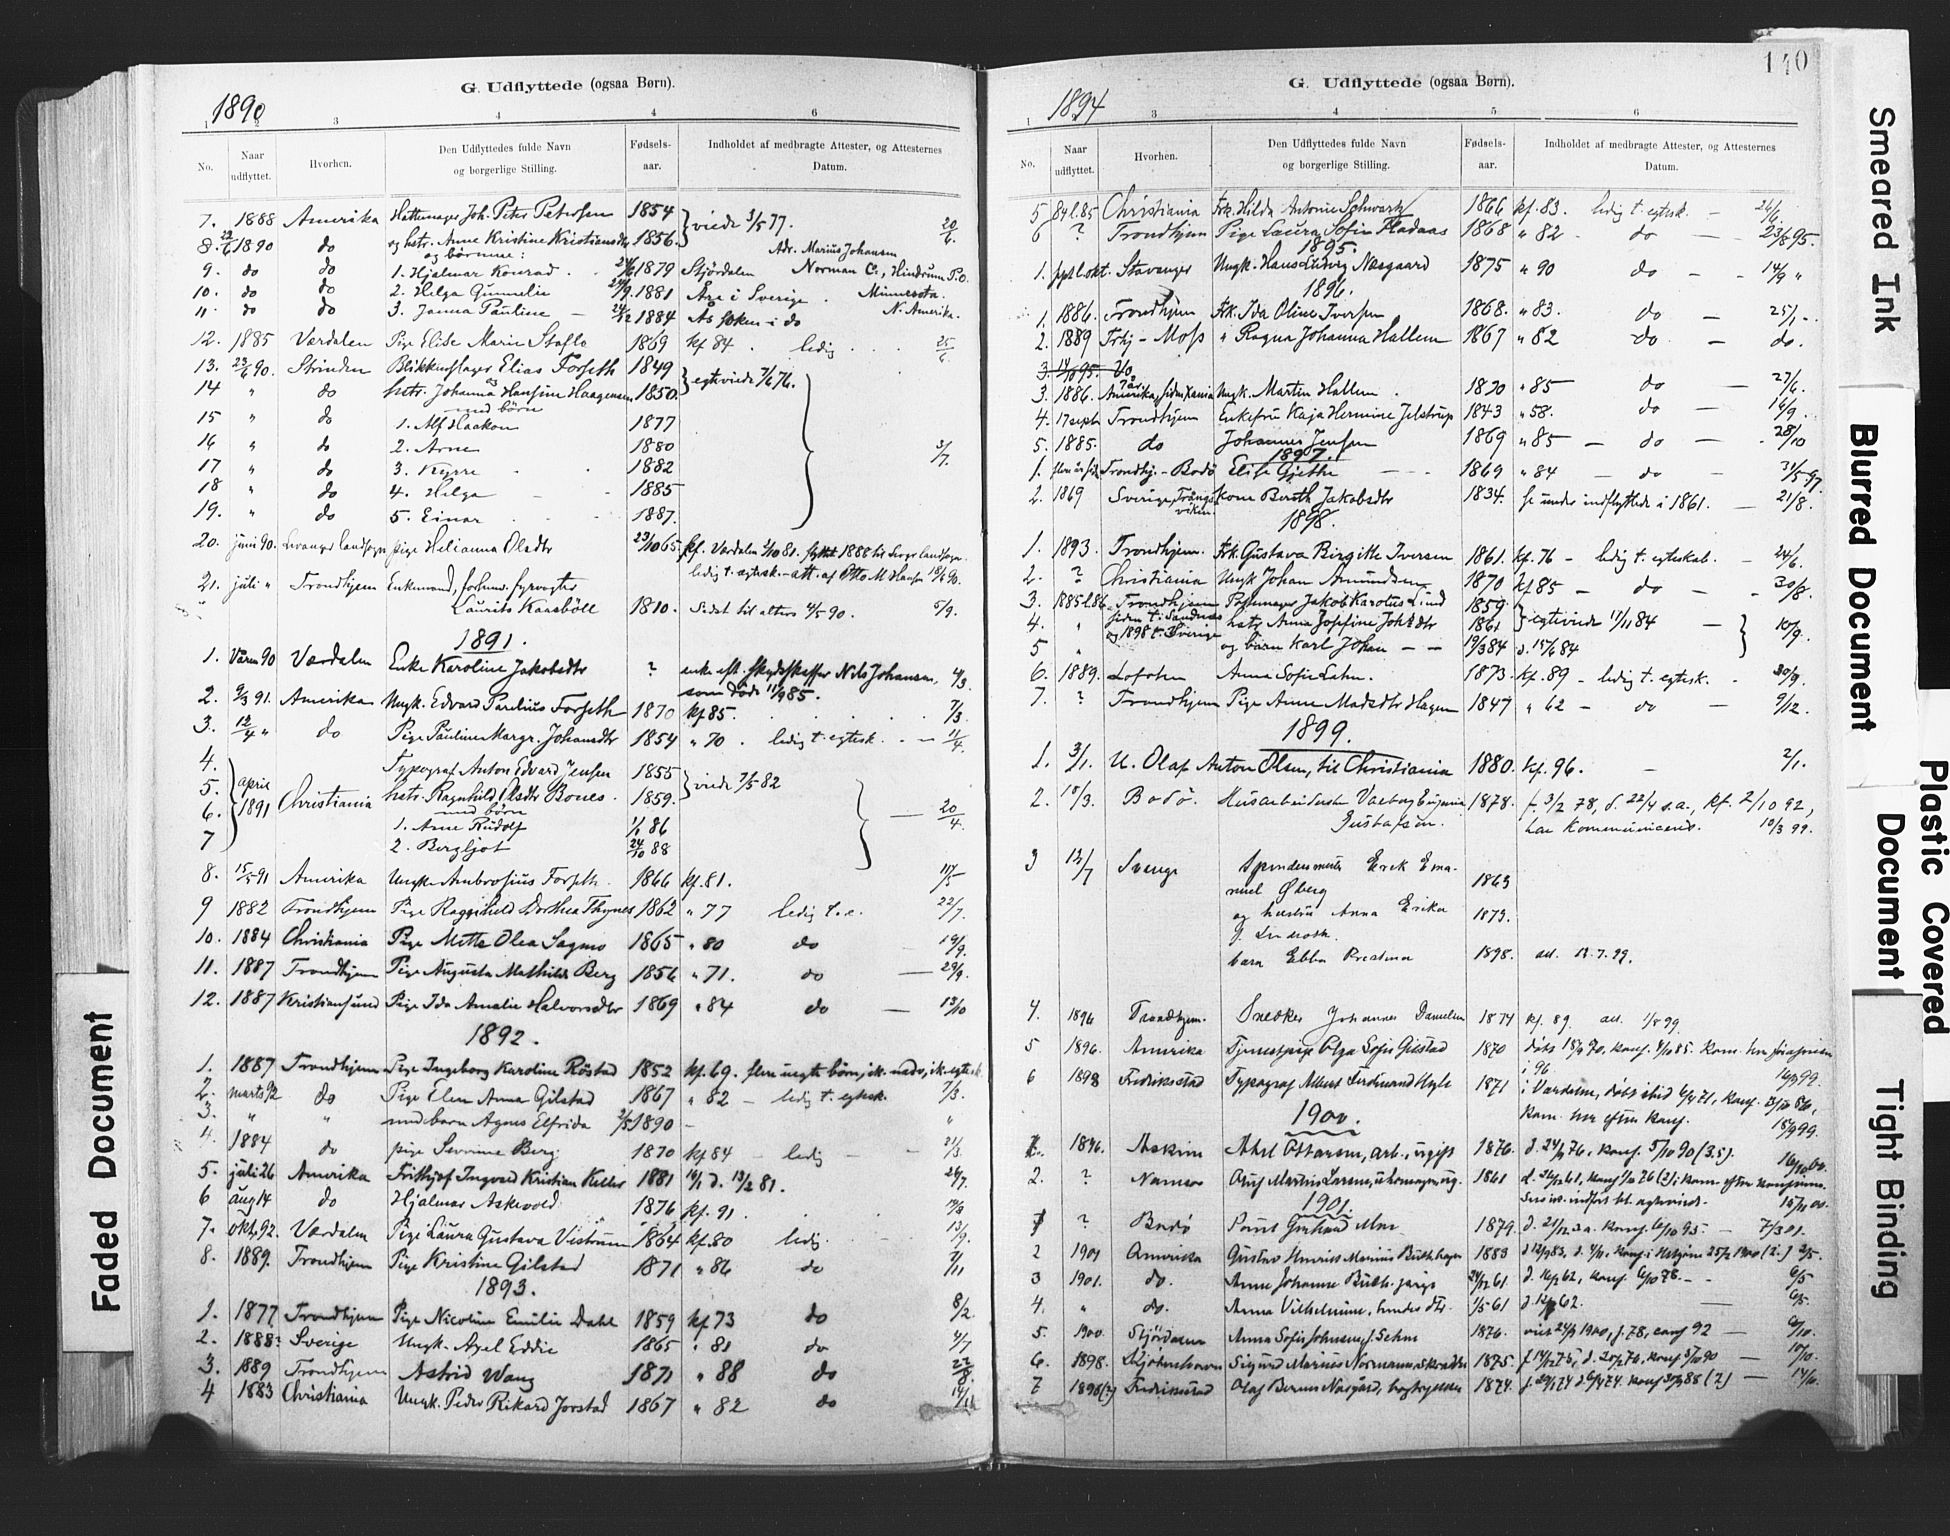 G. Udflyttede (ogsaa Børn).
1890
1 2 3 4 4 6
No. Naar udflyttet. Hvorhen. Den Udflyttedes fulde Navn og borgerlige Stilling. Fødsels-aar. Indholdet af medbragte Attester, og Attesternes Datum.
7. 1888 Amerika Hattemager Joh. Peter Petersen 1854 } viede 3/5 77. 20/6.
8. 22/6 1890 do og hstr. Anne Kristine Kristiansdtr 1856. Adr. Marius Johansen
og børnene:
9. do do 1. Hjalmar Konrad 1879 Stjørdalen Norman Co., Hindrum P.O.
10. do do 2. Helga Gunnelie 1881 Åre i Sverige. Minnesota.
11. do do 3. Janna Pauline 1884 Ås soken i do N. Amerika.
12. 1885 Værdalen Pige Elise Marie Staflo 1869 kf 84. ledig 25/6
13. 23/6 90. Strinden Blikkenslager Elias Forseth 1849 } egteviede 7/6 76.
14 " do hstr. Johanna Hansine Haagensen 1850.
med børn
15 " do 1. Alf Haakon 1877
16 " do 2. Arne 1880 3/7.
17 " do 3. Kyrre 1882
18 " do 4. Helga 1885
19. " do 5. Einar 1887.
20. juni 90. Levanger landsogn pige Helianna Olsdtr 23/10 65 kf. Værdalen 2/10 81. flyttet 1888 til Levgr landsogn.
ledig t. egtesk. – att. af Otto M Hansen 18/6 90.
21. juli " Trondhjem Enkemand, forhenv. fyrvogter
Laurits Kaasbøll 1810. Sidst til alters 4/5 90. 5/9.
1891.
1. Våren 90 Værdalen Enke Karoline Jakobsdtr ? enke eft. skydsskaffer Nils Johansen, 4/3
som døde 11/9 85.
2. 9/3 91. Amerika Ungk. Edvard Parelius Forseth 1870 kf 85. 7/3.
3. 12/4 " do Pige Pauline Margr. Johansdtr 1854 " 70. ledig t. egtesk. – 11/4.
4. Typograf Anton Edvard Jensen 1855 } viede 7/5 82
5. april
6. 1891 Christiania hstr. Ragnhild Olsdtr Bones. 1859. – 20/4.
med børn
1. Arne Rudolf 1/1 86
7 2. Bergljot 24/10 88
8. 15/5 91 Amerika Ungk. Ambrosius Forseth 1866 kf. 81. 11/5
9 1882 Trondhjem Pige Ragnhild Dorthea Thynes 1862 " 77 ledig t. e. 22/7.
10. 1884 Christiania Pige Mette Olea Sagmo 1865 " 80 do – 19/9.
11. 1887 Trondhjem Pige Augusta Mathilde Berg 1856 " 71. do – 29/9.
12. 1887 Kristiansund Pige Ida Amalie Halvorsdtr 1869 " 84 do – 13/10
1892.
1. 1887 Trondhjem Pige Ingeborg Karoline Røstad 1852 kf. 69. flere uegte børn,
2. marts 92 do Pige Elen Anna Gilstad 1867 " 82 – ledig t. egtesk. 7/3.
3. " " med barn Agnes Elfrida 2/5 1890 – "
4. 1884 do pige Severine Berg 1870 kf 84 – ledig – – 21/3.
5. juli 26 Amerika Frithjof Ingvard Kristian Keller 1881 14/1 d. 13/2 81. 26/7.
6 aug 14 do Hjalmar Askevold 1876 kf. 91.
7. okt. 92. Værdalen Pige Laura Gustava Vistrum 1864 kf. 80 ledig. 13/9.
8. 1889. Trondhjem Pige Kristine Gilstad 1871 " 86 do 7/11
1893.
1. 1877 Trondhjem Pige Nicoline Emilie Dahl 1859 kf 73 do 8/2
2. 1888: Sverige Ungk. Axel Eddie 1865 " 81 do 4/7
3. 1889 Trondhjem Astrid Wang 1871 " 88 do 22/8.
4 1883 Christiania Ungk. Peder Rikard Jorstad 1867 " 82 do 14/11
G. Udflyttede (ogsaa Børn).
140
1894
1 3 4 5 6
No. Naar udflyttet. Hvorhen. Den Udflyttedes fulde Navn og borgerlige Stilling. Fødsels-aar. Indholdet af medbragte Attester, og Attesternes Datum.
5 84 l. 85 Christiania Frk. Hilda Antonie Schwartz 1866 kf. 83. ledig t. egtesk. – 26/6.
6 ? Trondhjem Pige Laura Sofia Fladaas 1868 " 82 do – 23/8 95.
1895.
1. Stavanger Ungk. Hans Ludvig Næsgaard 1875 " 90 do – 14/9 "
1896.
1. 1886. Trondhjem Frk. Ida Oline Iversen 1868. " 83. do – 25/1
2. 1889 Trhj – Moss " Ragna Johanna Hallem 1867 " 82 do – do.
3. 14/9 95. Vo
3. 1886. Amerika, siden Xania Ungk. Martin Hallem 1870 " 85 do – 27/6.
4. 17 sept Trondhjem Enkefru Kaja Hermine Jelstrup 1843 " 58. do – 16/9.
5. 1885. do Johannes Jensen 1869 " 85 – do – 28/10
1897.
1. Trondhj. – Bodø Elise Gjethe – – 1869 " 84 – do – 31/5 97.
2. 1869 Sverige, Trångsviken kone Berith Jakobsdtr 1834. se under indflyttede i 1861. – 21/8.
1898.
1. 1893. Trondhjem. Frk. Gustava Birgitte Iversen 1861. kf. 76 – ledig t. egteskab. – 24/6.
2. ? Christiania Ungk Johan Amundsen 1870 kf 85 – do – 30/8.
3. 1885 l. 86 Trondhjem Jakob Karolus Lind 1859 } egteviede 17/11 84
4. " siden t. Sandnes hstr. Anna Josefine Joh.dtr 1861 – 10/9.
og 1898 t. Sverige
5 " og barn Karl Johan – – 19/3 84 d. 15/6 84
6. 1889. Lofoten Anna Sofie Lehn. 1873. kf. 89 – ledig t. egtesk. 30/9.
7. ? Trondhjem Pige Anne Madsdtr Hagen 1847 " 62 – do – 9/12.
1899.
1. 3/1. U. Olaf Anton Olsen, til Christiania 1880. kf. 96. – 2/1.
2. 10/3. Bodø. Husarbeiderske Valborg Eugenia 1878. f. 3/2 78, d. 22/4 s.a., kf. 2/10 92,
Gustafson. har kommuniceret. 10/3 99.
3 12/7 Sverige Spindemester Erik Ema-
nuel Øberg 1863
og hustru Anna Erika 1873.
f. Lindroth.
barn Ebba 1898. att. 12.7.99.
4. 1896 Trondhjem. Snedker Johannes Danielsen 1874 kf. 89. att. 1/8 99.
5 1896. Amerika Tjenestpige Olga Sofie Gilstad 1870 døbt 18/9 70, konf. 4/10 85.
i 96. 16/9 99.
6 1898 Fredriksstad Typograf Albert Ferdinand 1871 i Værdalen, døbt stid 6/4 71, konf.
kom. her efter konf. 18/9 99.
1900.
1. 1896. Askim Axel Ottarsen, arb., ugift 1876. d. 24/9 76, konf. 5/10 90 (3.s). 16/10 00.
2. ? Namsos Oluf Martin Larsen, 1861
15/11 00.
1901.
1 ? Bodø 1879. 7/3 01.
2 1901 Amerika Gustav Henrik Marius Buckhagen 1883 2/5.
3 1901. do. Anne Johanne 24/12 61. konf. 6/10 78. – – 6/5
4. " do. Anna Vilhelmine, hendes dtr. 1/5 61 d. 12/5 62. – 6/5.
5. 1900. Stjørdalen Anna Sofie Johnsen, f. Sehm 1876. viet 24/9 1900, f. 78, conf 92 – 6/10.
6. 1898. Kjøbenhavn Sigurd Marius Normann, skrædder 1875. konf 5/10 90 – 10/10.
7 1898 (?) Fredriksstad Olaf Bernus Nøsgård, bogtrykker 1874. konf 30/9 88 (2) – 14/11.
Smeared Ink
Blurred Document
Plastic Covered Document
Tight Binding
Faded Document